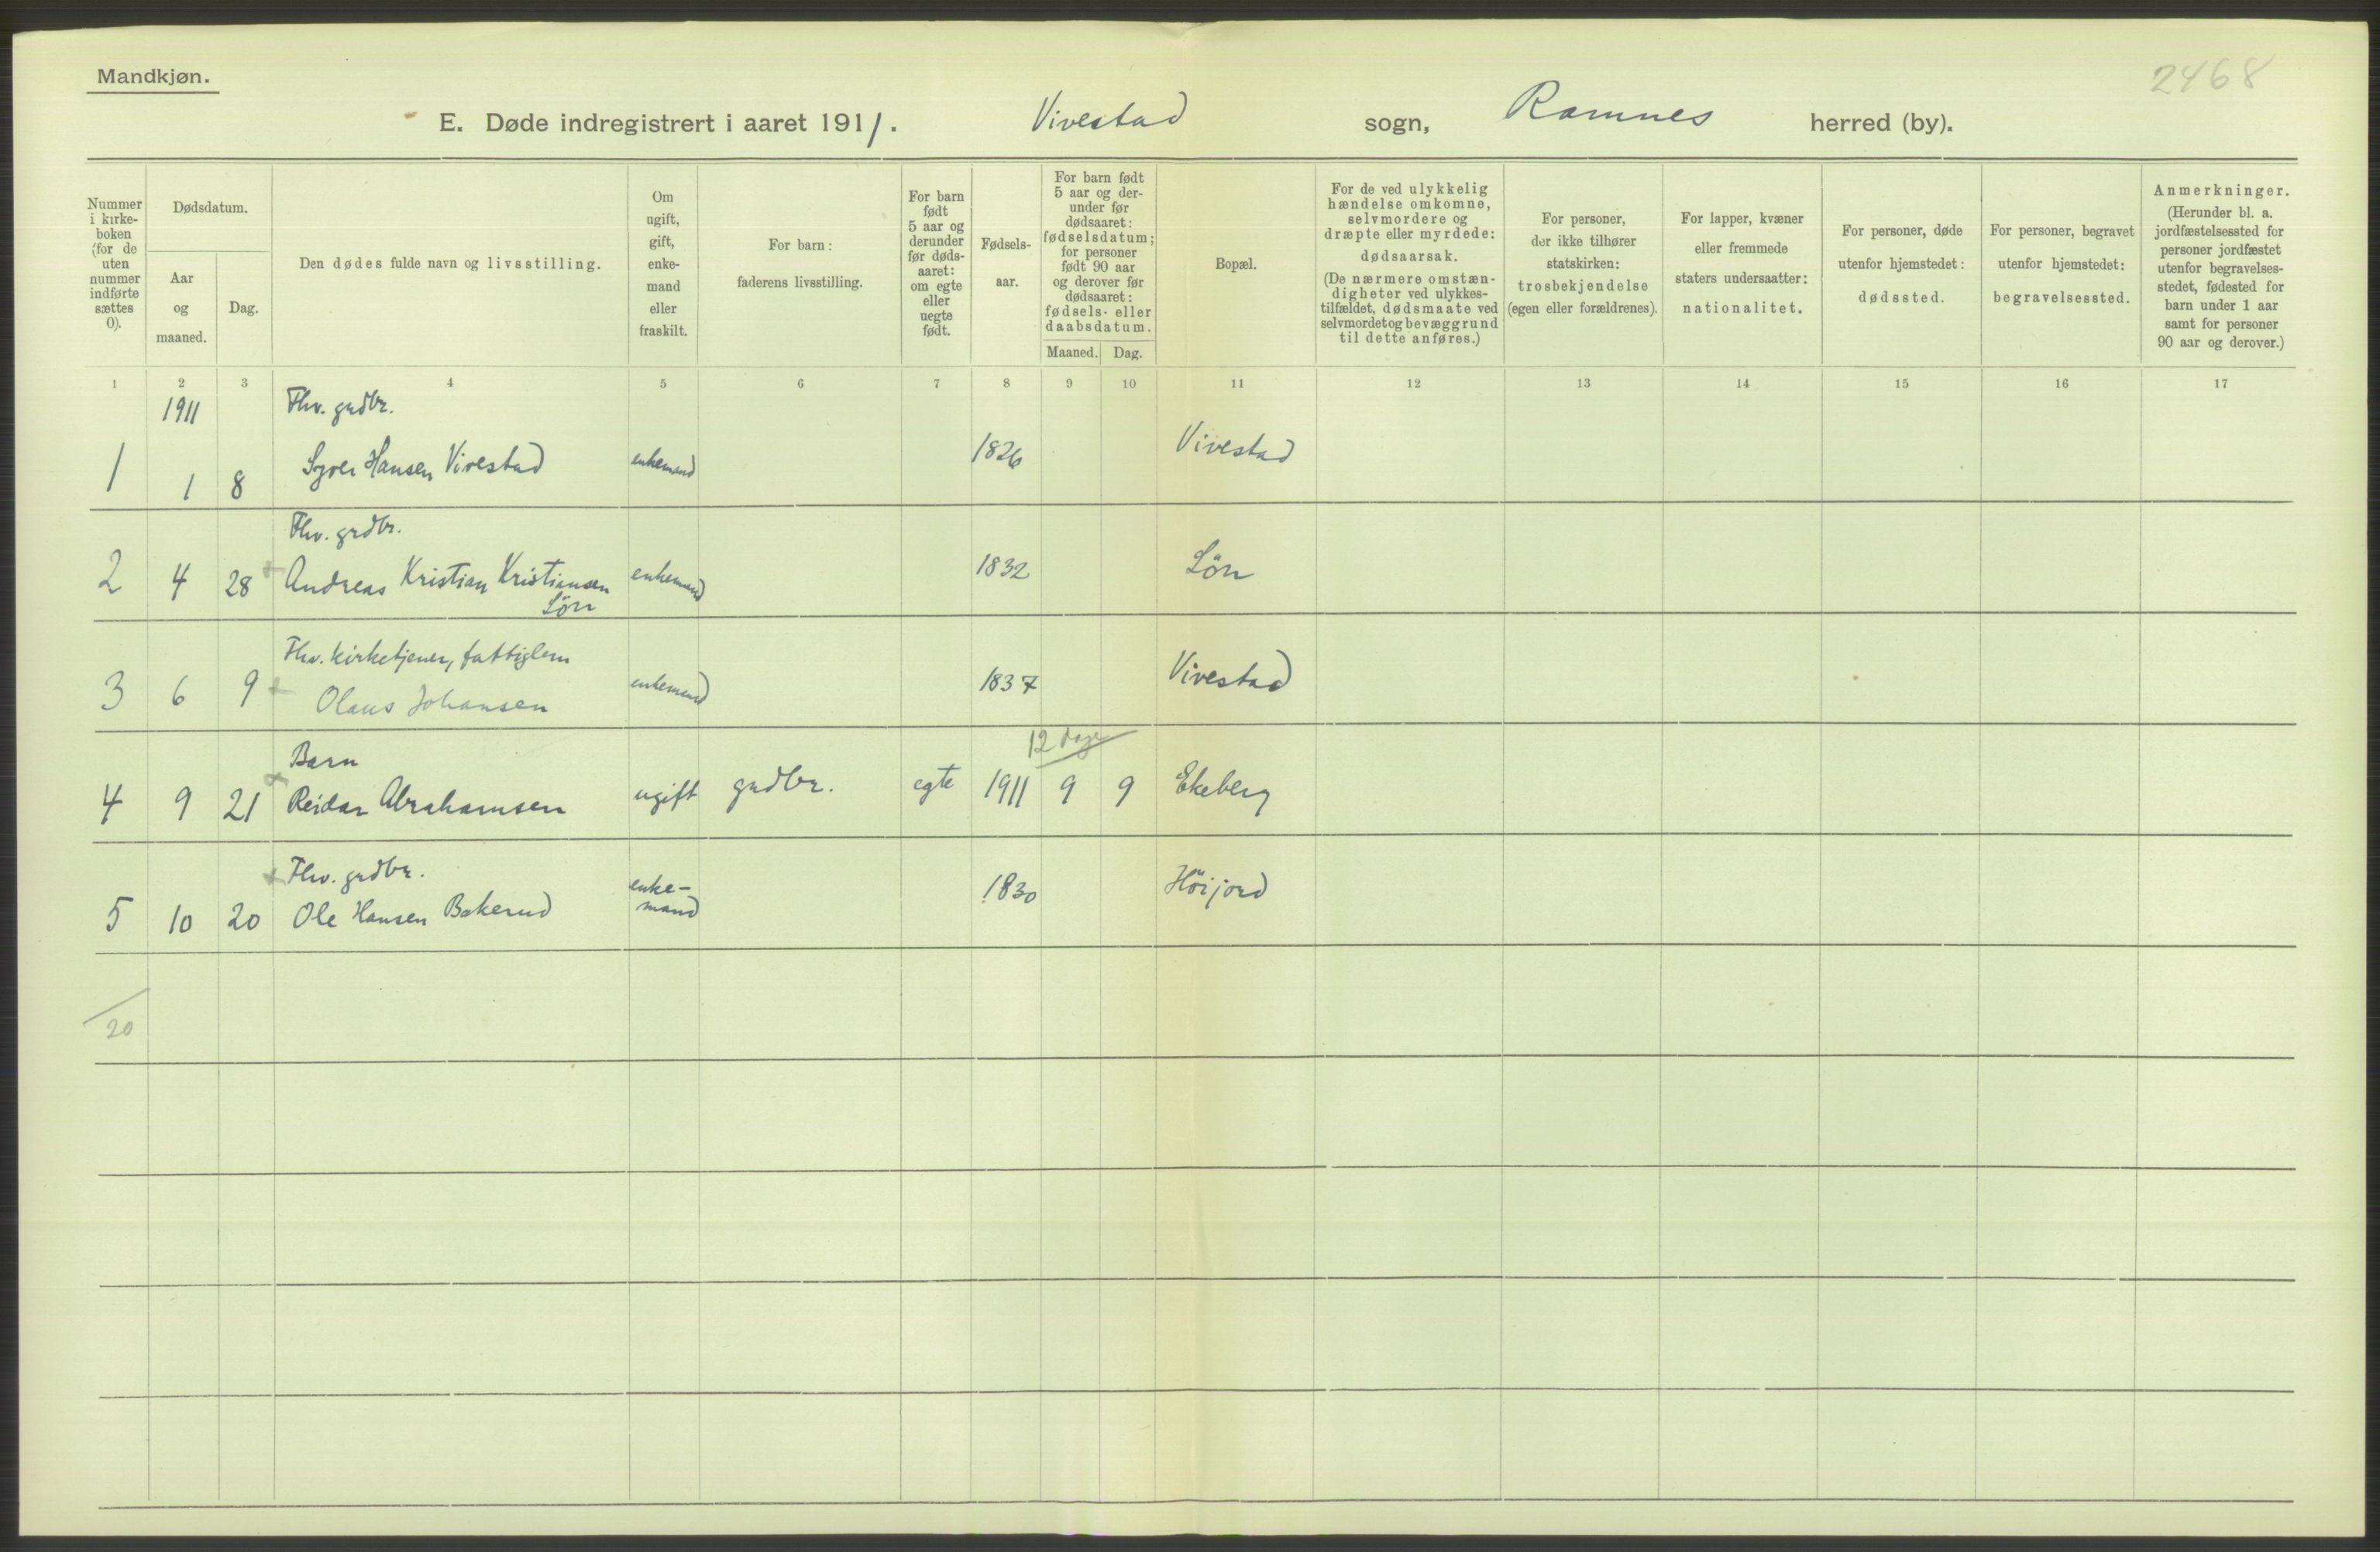 Mandkjøn.
2468
E. Døde indregistrert i aaret 1911. Vivestad sogn, Ramnes herred (by).
Nummer i kirke-boken (for de uten nummer indførte sættes 0).
Dødsdatum.
Aar og maaned.
Dag.
Den dødes fulde navn og livsstilling.
Om ugift, gift, enke-mand eller fraskilt.
For barn: faderens livsstilling.
For barn født 5 aar og derunder før døds-aaret: om egte eller uegte født.
Fødsels-aar.
For barn født 5 aar og der-under før dødsaaret: fødselsdatum; for personer født 90 aar og derover før dødsaaret: fødsels- eller daabsdatum.
Maaned. Dag.
Bopæl.
For de ved ulykkelig hændelse omkomne, selvmordere og dræpte eller myrdede: dødsaarsak. (De nærmere omstæn-digheter ved ulykkes-tilfældet, dødsmaate ved selvmordet og bevæggrund til dette anføres.)
For personer, der ikke tilhører statskirken: trosbekjendelse (egen eller forældrenes).
For lapper, kvæner eller fremmede staters undersaatter: nationalitet.
For personer, døde utenfor hjemstedet: dødssted.
For personer, begravet utenfor hjemstedet: begravelsessted.
Anmerkninger. (Herunder bl. a. jordfæstelsessted for personer jordfæstet utenfor begravelses-stedet, fødested for barn under 1 aar samt for personer 90 aar og derover.)
1 2 3 4 5 6 7 8 9 10 11 12 13 14 15 16 17
1911 Fhv. grdbr.
1 1 8 Syver Hansen Vivestad enkemand 1826 Vivestad
Fhv. grdbr.
2 4 28 Andreas Kristian Kristiansen enkemand 1832 Lön
Lön
Fhv. kirketjener, fattiglem
3 6 9 Olaus Johansen enkemand 1837 Vivestad
12 dage
Barn
4 9 21 Reidar Abrahamsen ugift grdbr. egte 1911 9 9 Ekeberg
Fhv. grdbr.
5 10 20 Ole Hansen Bakerud enke-mand 1830 Höijord
20